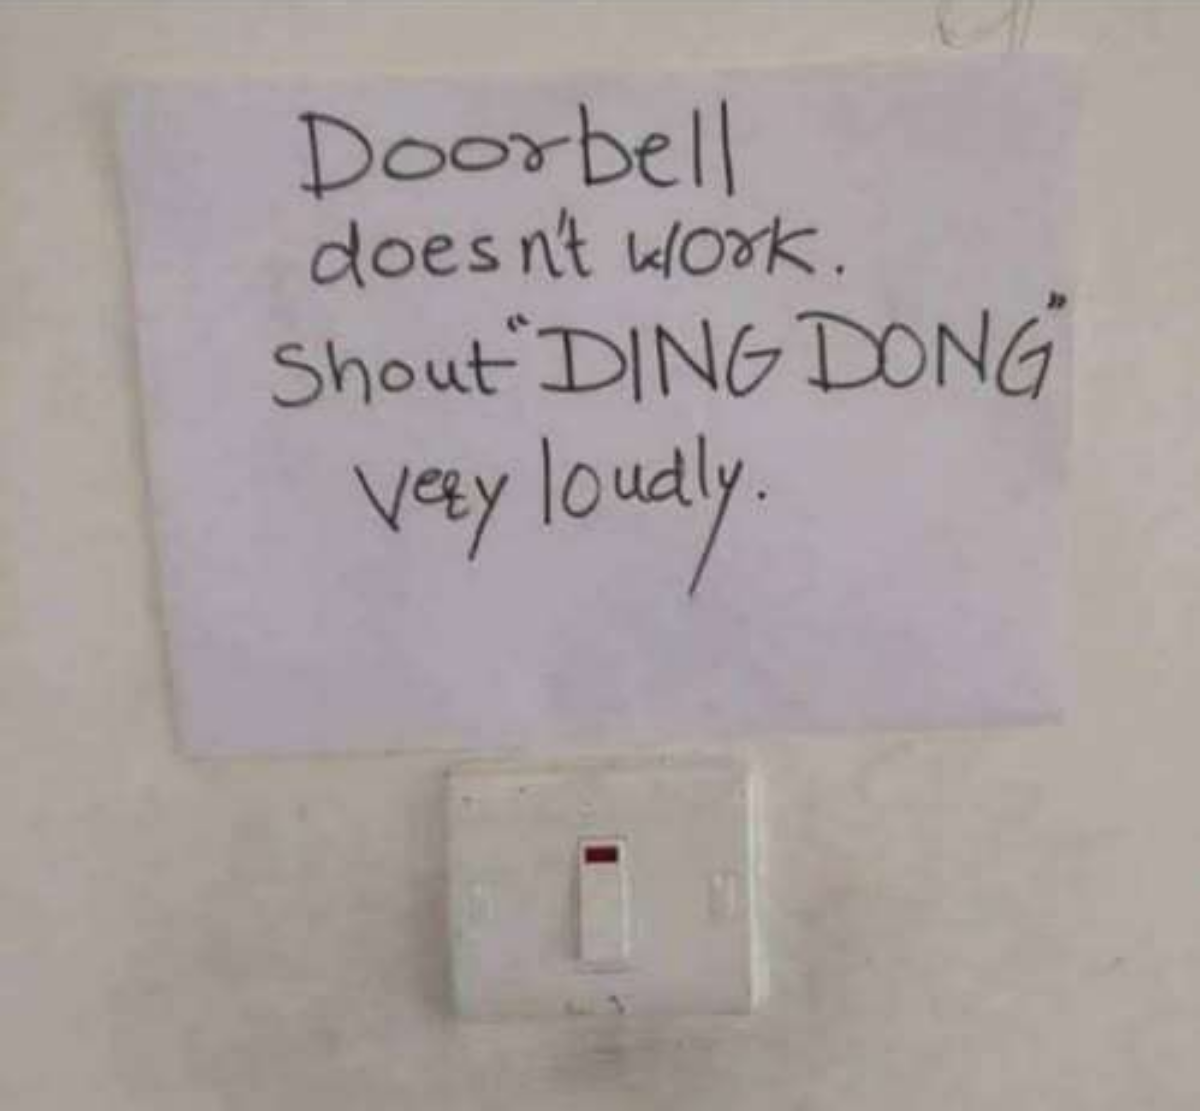 Doorbell
doesn't work.
Shout "DING DONG"
very loudly.